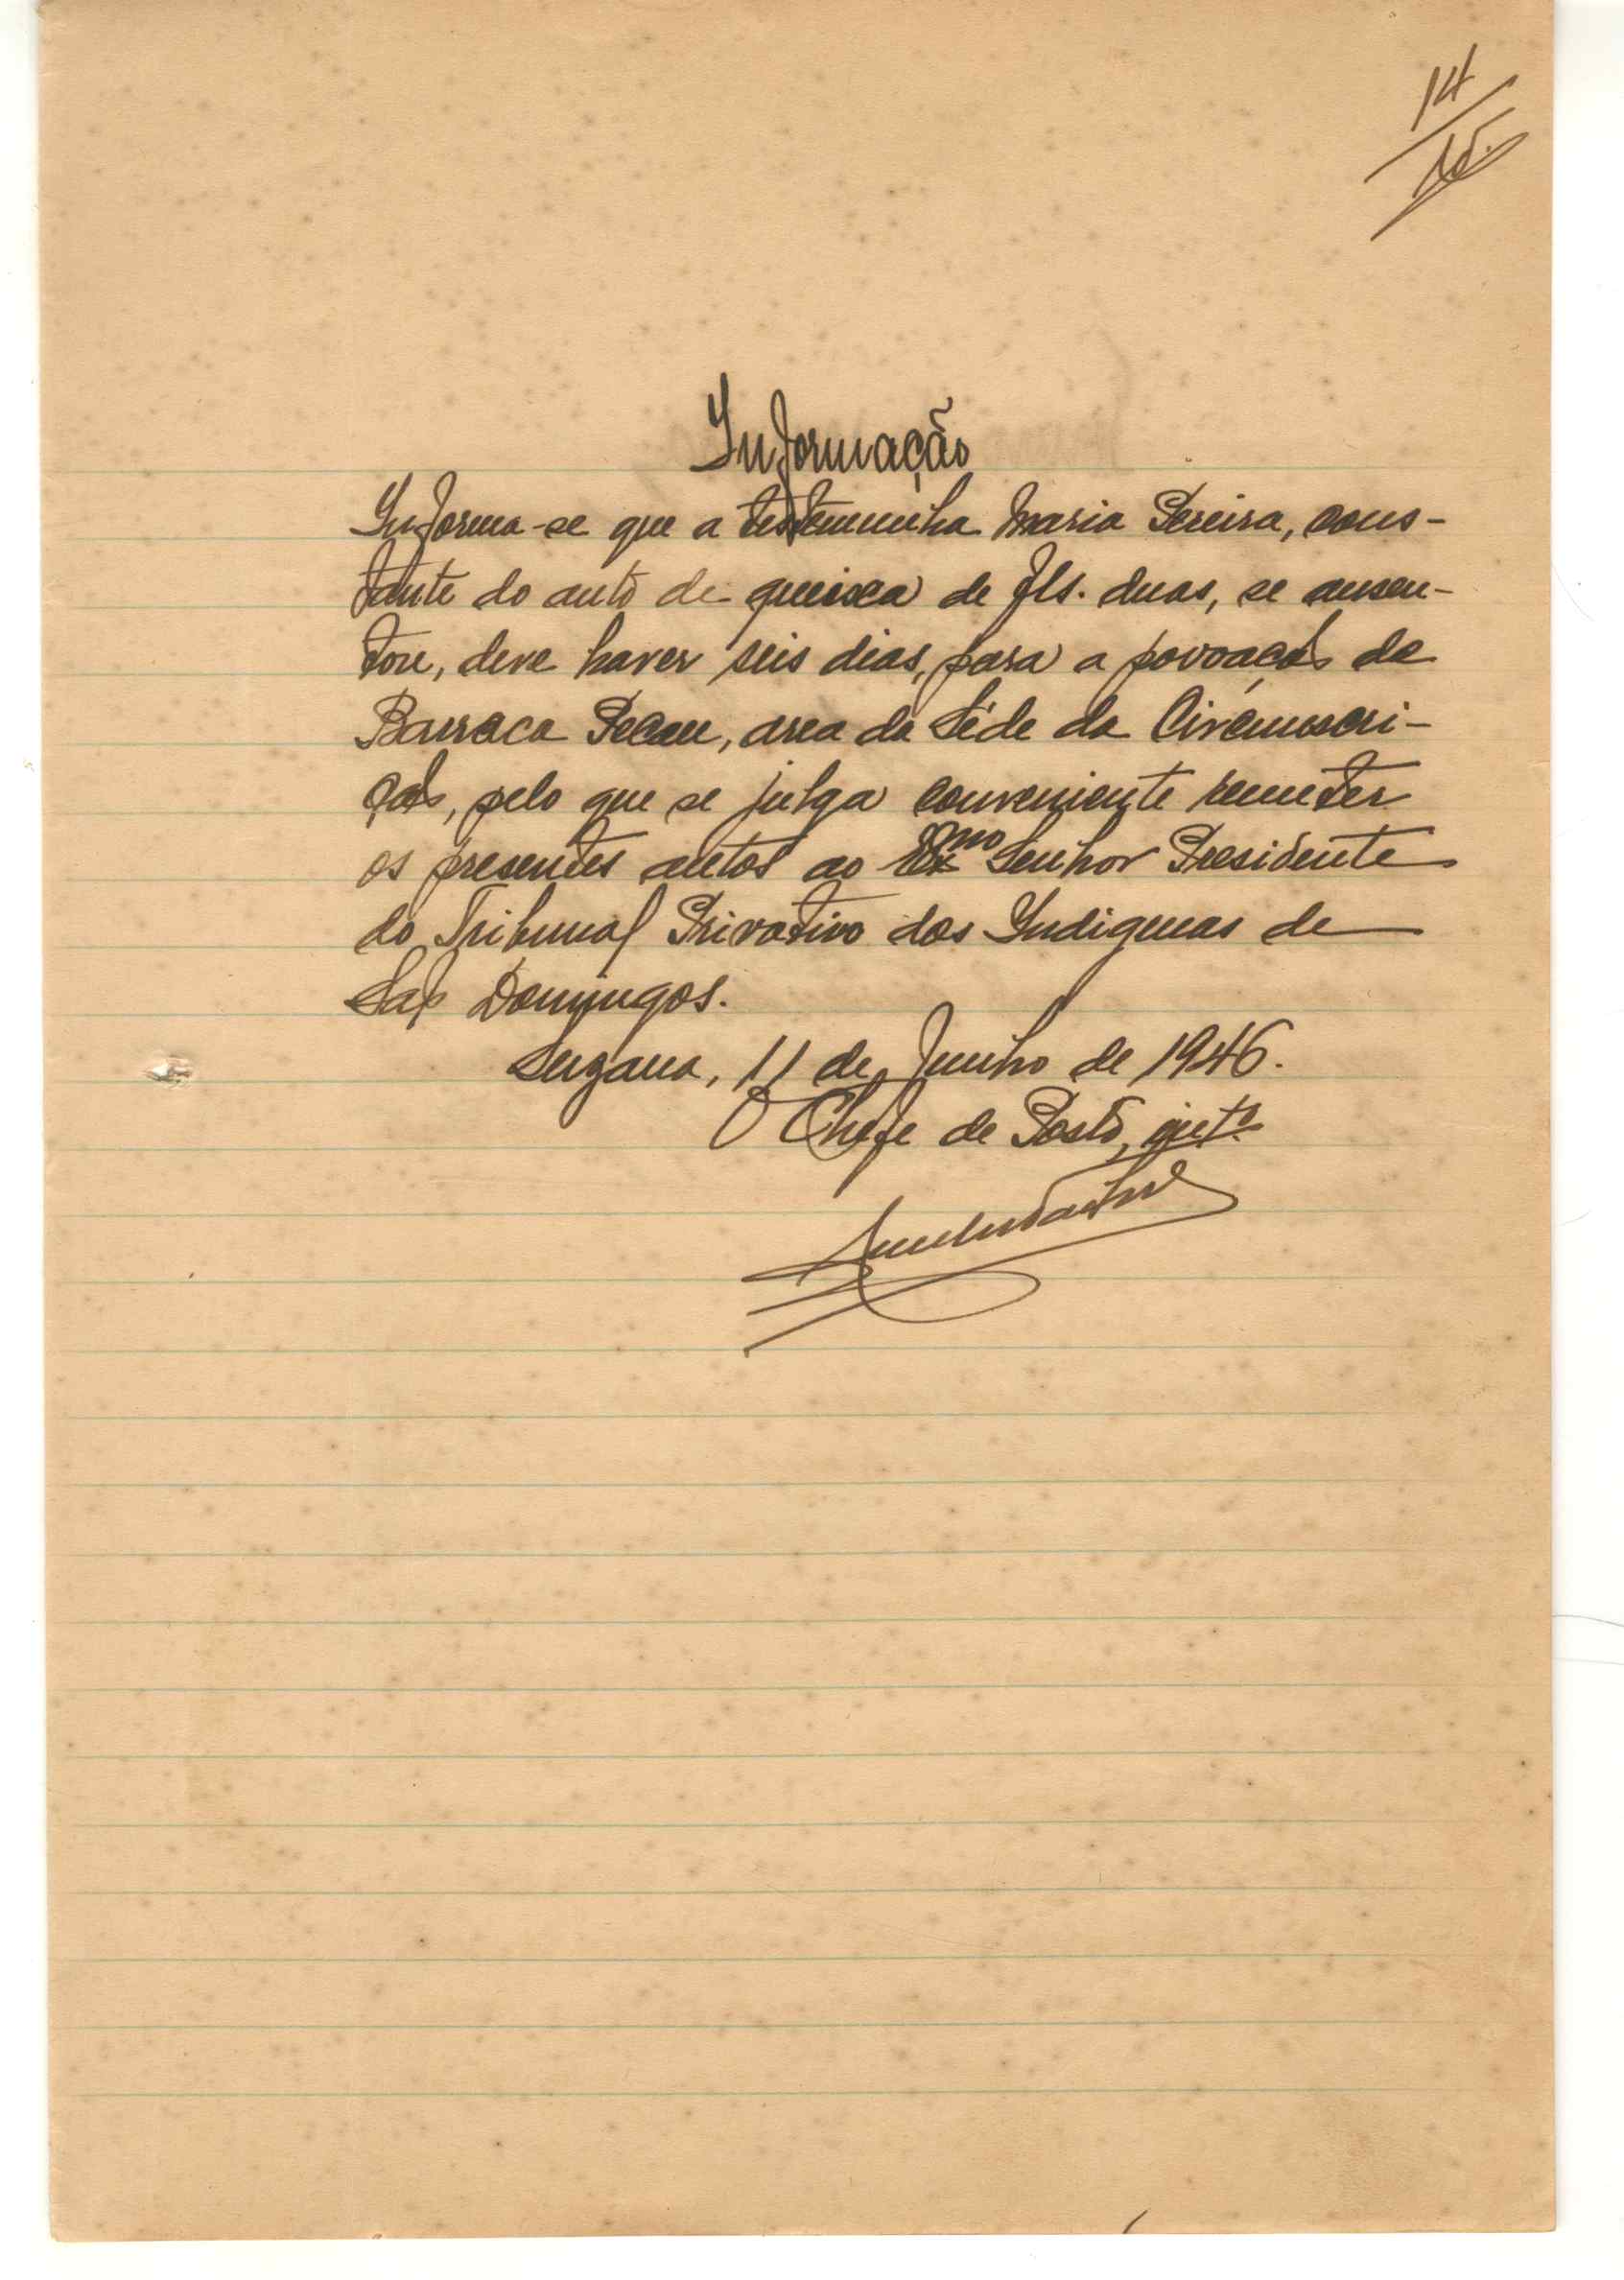 14
Informação
Informa-se que a testemunha Maria Pereira, cons-
tante do auto de queixa de fls. duas, se ausen-
tou, deve haver seis dias, para a povoação de
Barraca Pecau, area da Séde da Circunscri-
ção, pelo que se julga conveniente remeter
os presentes autos ao Exmo Senhor Presidente
do Tribunal Privativo dos Indigenas de
São Domingos.
Suzana, 11 de Junho de 1946.
O Chefe de Posto, intº